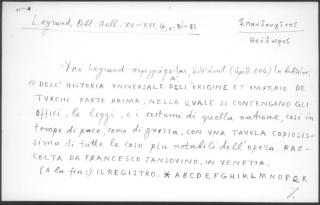 Legrand, Bibl. Hell. XV-XVI, 4, σ. 81-83
Σπανδουγῖνος
Θεόδωρος
Ὑπὸ Legrand περιγράφεται
« DELL' HISTORIA VNIVERSALE DELL'ORIGINE ET IMPERIO DE
TVRCHI. PARTE PRIMA, NELLA QVALE SI CONTENGONO GLI
Offici, le leggi, e i costumi di quella natione, cosi in
tempo di pace, come di guerra, CON VNA TAVOLA COPIOSIS-
sima di tutte le cose piu notabili dell' opera. RAC-
COLTA DA FRANCESCO SANSOVINO, IN VENETIA.
(A la fin:) IL REGISTRO. * A B C D E F G H I K L M N O P Q R